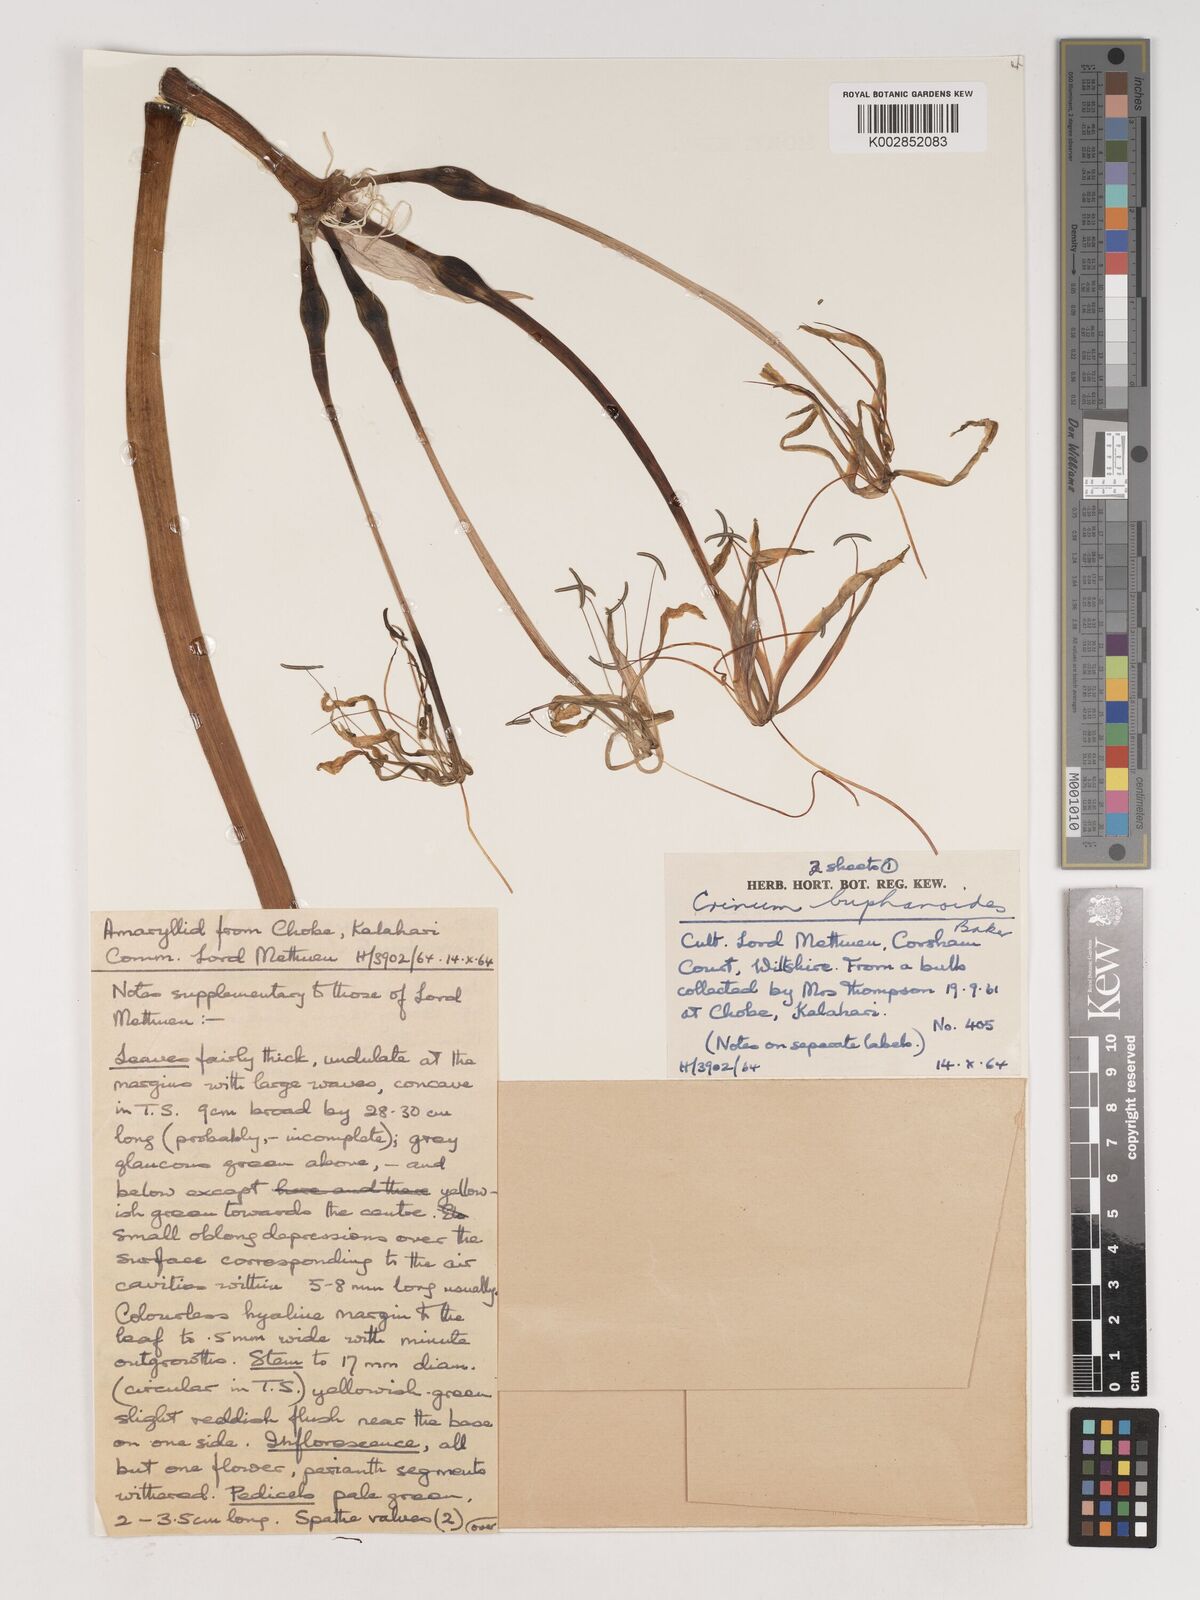 ROYAL BOTANIC GARDENS KEW
K002852083
2 sheets ①
HERB. HORT. BOT. REG. KEW.
Crinum buphanoides
Baker
Cult. Lord Methuen, Corsham
Court, Wiltshire. From a bulb
collected by Mrs Thompson 19.9.61
at Chobe, Kalahari.
No. 405
(Notes on seperate labels.)
H/3902/64 14.X.64
Amaryllid from Chobe, Kalahari
Comm. Lord Methuen H/3902/64.14.X.64
Notes supplementary to those of Lord
Methuen :-
Leaves fairly thick, undulate at the
margins with large waves, concave
in T.S. 9cm broad by 28-30 cm
long (probably,- incomplete); grey
glaucous green above, - and
below except here and there yellow-
ish green towards the centre.
Small oblong depressions over the
surface corresponding to the air
cavities within 5-8 mm long usually.
Colourless hyaline margin to the
leaf to .5mm wide with minute
outgrowths. Stem to 17 mm diam.
(circular in T.S.) yellowish-green
slight reddish flush near the base
on one side. Inflorescence, all
but one flower, perianth segments
withered. Pedicels pale green,
2 - 3.5cm long. Spathe valves (2) (over
inches
Density
Don Williams
centimeters
M001010
Royal Botanic Gardens
Kew
0 1 2 3 4 5 6 7 8 9 10
cm
copyright reserved